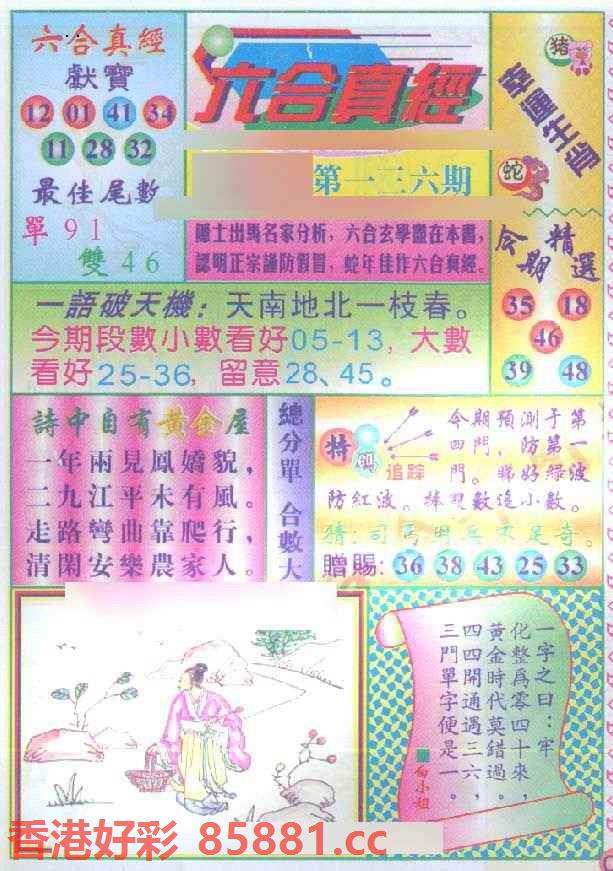 六合真經
獻寶
12 01 41 34
11 28 32
最佳尾數
單91
雙46
六合真經
第一三六期
隱士出馬名家分析，六合玄學盡在本書，
認明正宗謹防假冒，蛇年佳作六合真經。
豬
蛇
今期精選
35 18
46
39 48
一語破天機：天南地北一枝春。
今期段數小數看好05-13，大數
看好25-36，留意28、45。
詩中自有黃金屋
一年兩見鳳嬌貌，
二九江平未有風。
走路彎曲靠爬行，
清閑安樂農家人。
總分單 合數大
特碼
追踪
今期預測于第
四門，防第一
門。睇好綠波
防紅波。捧双數追小數。
猜：司馬明兵不足奇。
贈賜：36 38 43 25 33
一字之曰：牢
化整為零四十來，
黃金時代莫錯過。
四四開通遇三六，
三門單字便是一。
白小姐
香港好彩 85881.cc